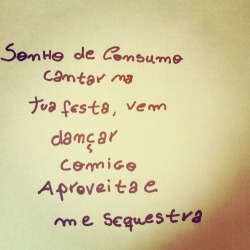 Sonho de Consumo
cantar na
tua festa, vem
dançar
comigo
Aproveita e
me sequestra